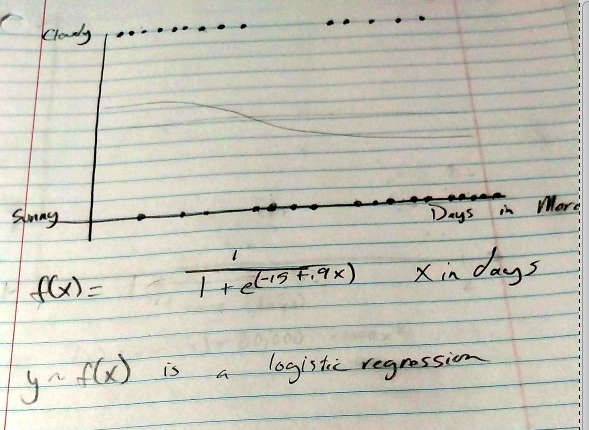 Cloudy
Sunny
Days in Marc
f(x) = 1 / 1 + e^(-15 + .9x) x in days
y ~ f(x) is a logistic regression